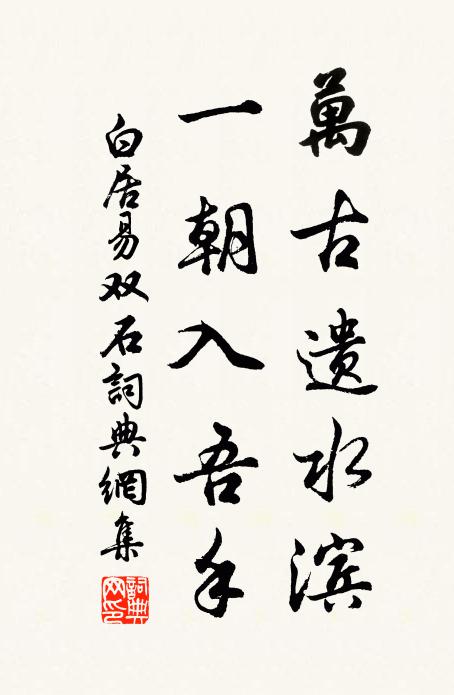 萬古遺水滨
一朝入吾手
白居易双石詞典網集
詞典網印